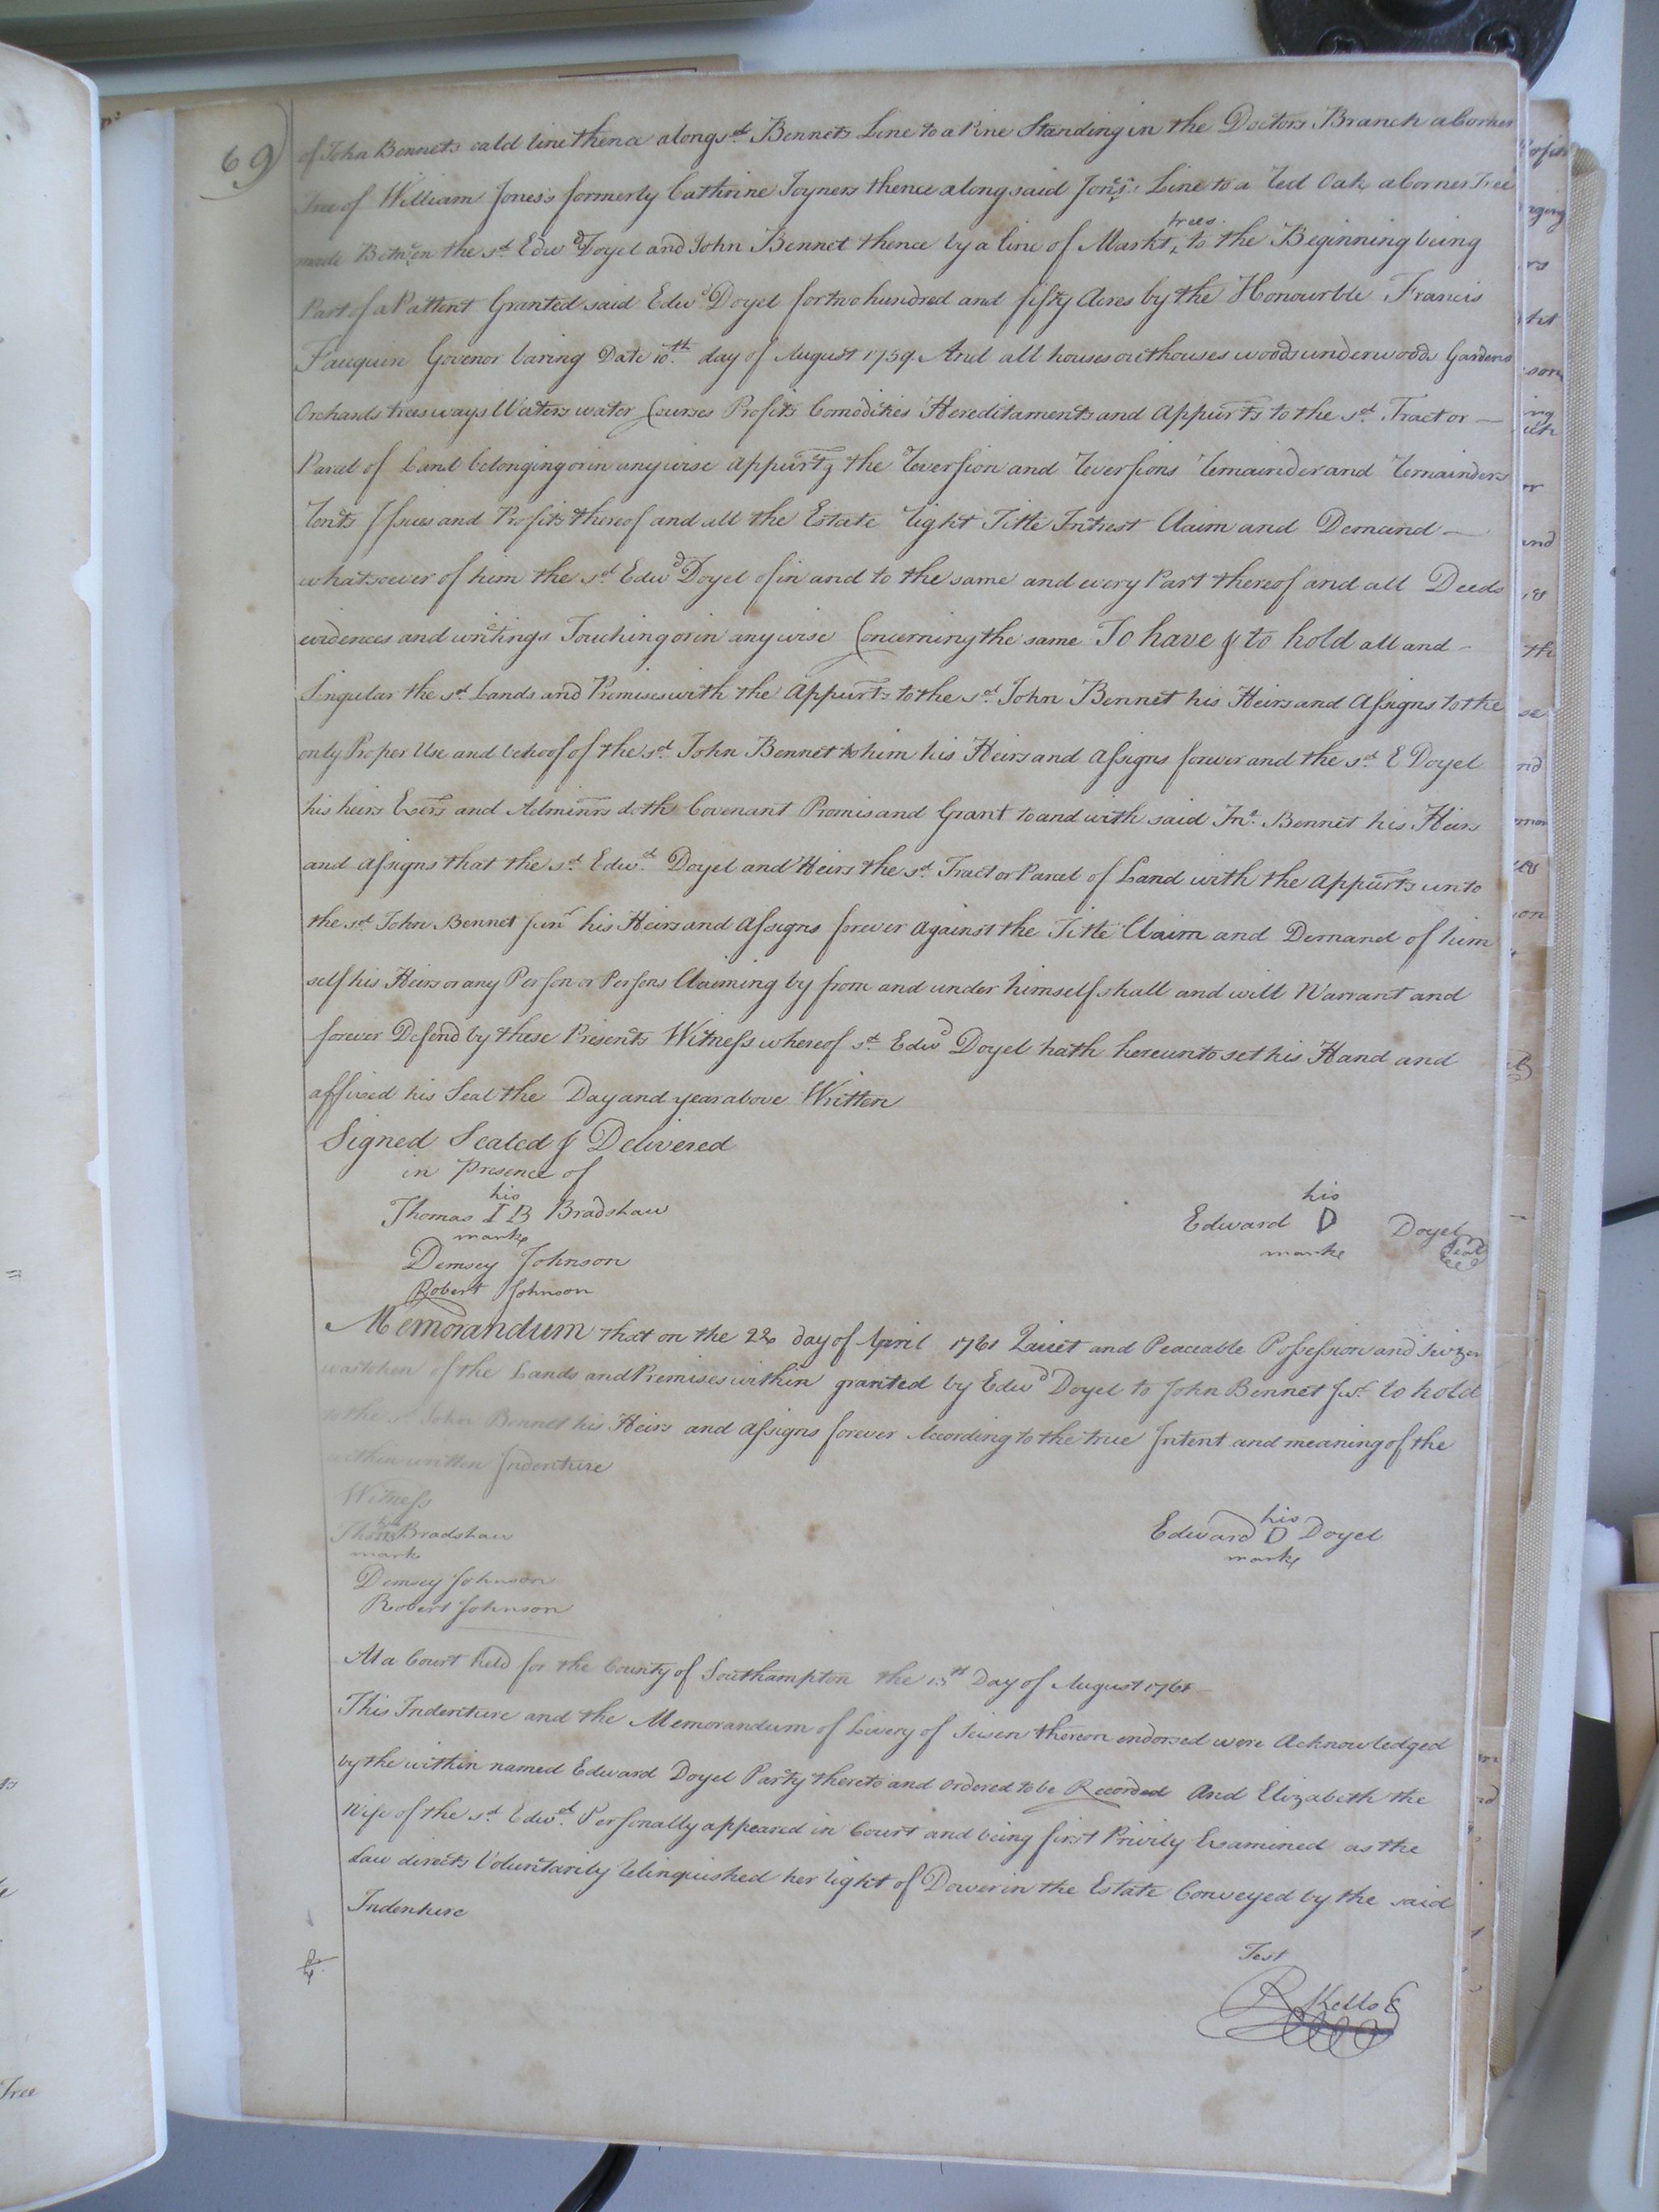 69)
of John Bennets oald line thena along sd. Bennets Line to a Pine Standing in the Doctors Branch a Corner
Tree of William Jones's formerly Cathrine Joyners thence along said Jones's Line to a Red Oak a Corner Tree
made Between the sd. Edwd Doyel and John Bennet thence by a line of Markt trees to the Beginning being
Part of a Pattent Granted said Edwd Doyel for two hundred and fifty Acres by the Honourble Francis
Fauquin Govenor baring Date 10th day of August 1759. And all houses outhouses woods underwoods Gardens
Orchards trees ways Waters water Courses Profits Comodities Hereditaments and Appurts to the sd. Tract or —
Parcel of Land belonging or in any wise appurtg the Reversion and Reversions Remainder and Remainders
Rents Issues and Profits thereof and all the Estate Right Title Intrest Claim and Demand —
whatsoever of him the sd. Edwd Doyel of in and to the same and every Part thereof and all Deeds
evidences and writings Touching or in any wise Concerning the same To have & to hold all and -
Singular the sd. Lands and Premises with the Appurts to the sd. John Bennet his Heirs and Assigns to the
only Proper Use and behoof of the sd. John Bennet to him his Heirs and Assigns forever and the sd. E Doyel
his heirs Exers and Adminrs doth Covenant Promis and Grant to and with said Jno. Bennet his Heirs
and Assigns that the sd. Edwd. Doyel and Heirs the sd. Tract or Parcel of Land with the Appurts unto
the sd. John Bennet junr his Heirs and Assigns forever against the Title Claim and Demand of him
self his Heirs or any Person or Persons Claiming by from and under himself shall and will Warrant and
forever Defend by these Presents Witness whereof sd. Edwd Doyel hath hereunto set his Hand and
affixed his Seal the Day and year above Written
Signed Sealed & Delivered
in presence of
his
Thomas I B Bradshaw
mark
Demsey Johnson
Robert Johnson
his
Edward D Doyel
marke
Seal
Memorandum that on the 22 day of April 1761 Quiet and Peaceable Possession and Seizen
was taken of the Lands and Premises within granted by Edwd Doyel to John Bennet Jur. to hold
to the sd John Bennet his Heirs and Assigns forever According to the true Intent and meaning of the
within written Indenture
Witness
Thos Bradshaw
mark
Demsey Johnson
Robert Johnson
his
Edward D Doyel
mark
At a Court held for the County of Southampton the 13th Day of August 1761 —
This Indenture and the Memorandum of Livery of Seisen thereon endorsed were Acknowledged
by the within named Edward Doyel Party thereto and ordered to be Recorded And Elizabeth the
Wife of the sd. Edwd. Personally appeared in Court and being first Privily Examined as the
Law directs Voluntarily Relinquished her Right of Dower in the Estate Conveyed by the said
Indenture
Test
R Kello